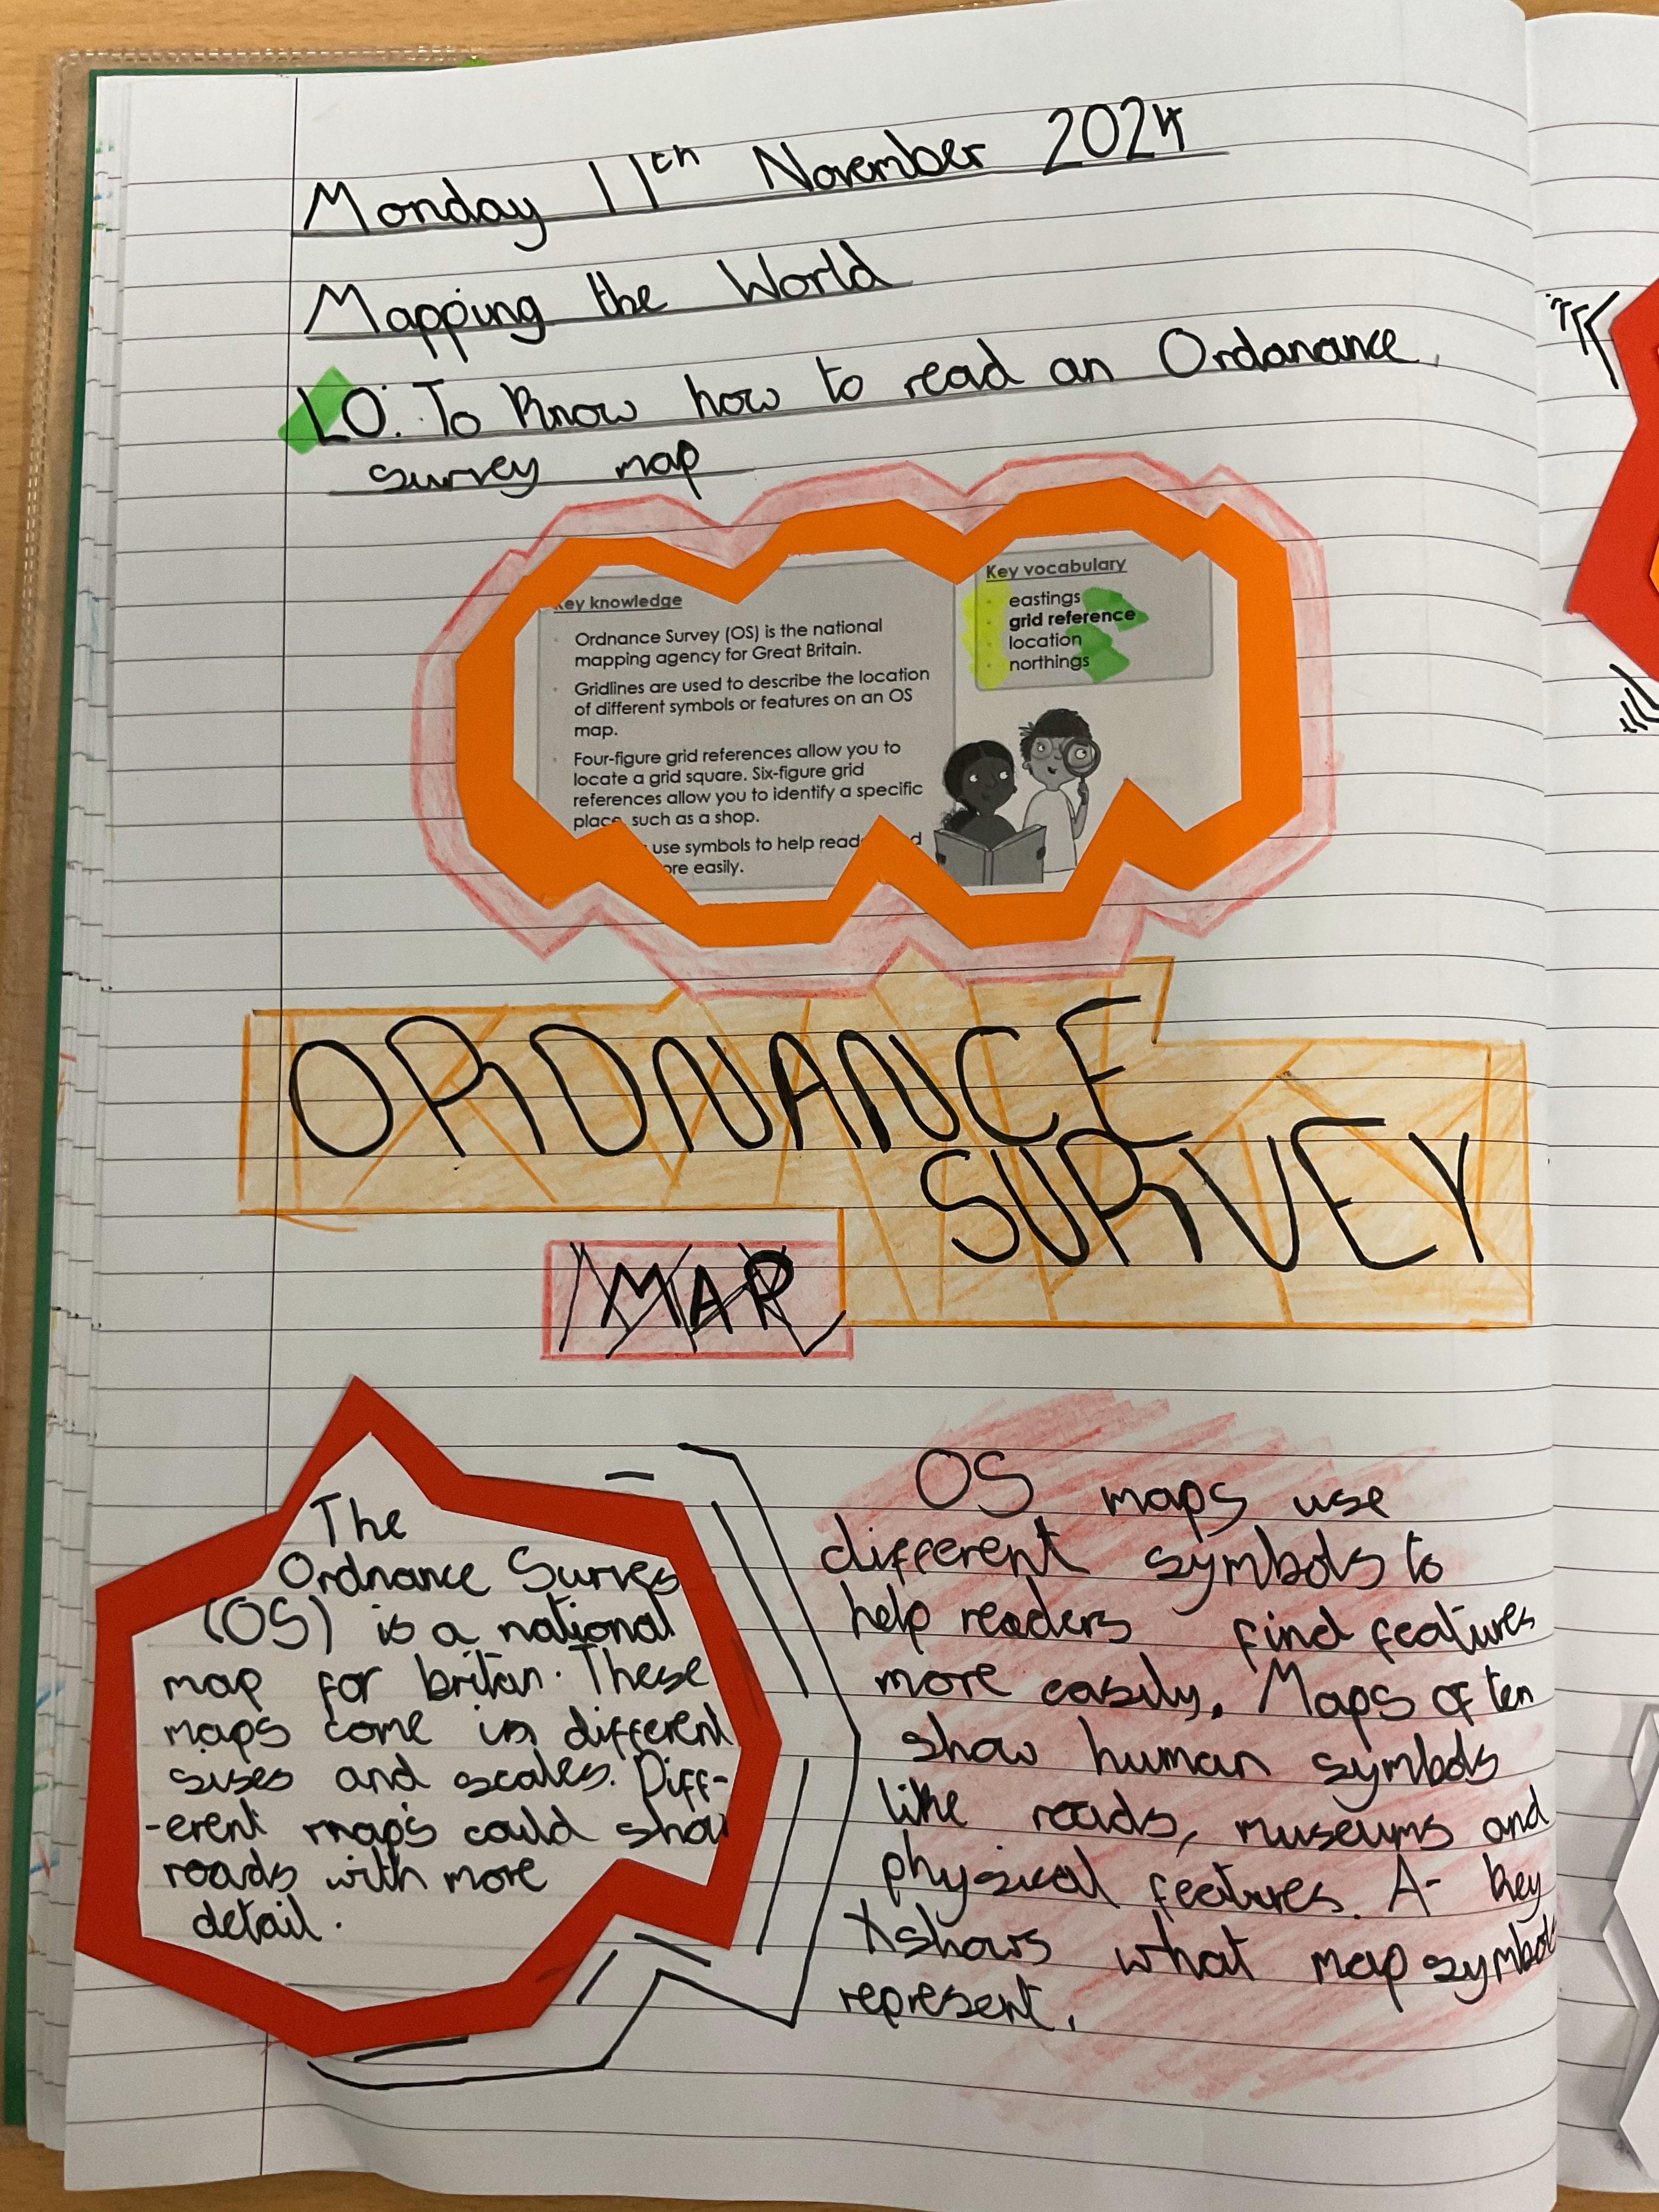 Monday 11th November 2024
Mapping the World
LO: To Know how to read an Ordanance
survey map
Key knowledge
Ordnance Survey (OS) is the national
mapping agency for Great Britain.
Gridlines are used to describe the location
of different symbols or features on an OS
map.
Four-figure grid references allow you to
locate a grid square. Six-figure grid
references allow you to identify a specific
place, such as a shop.
use symbols to help
easily.
Key vocabulary
eastings
grid reference
location
northings
ORDNANCE
SURVEY
MAP
The
Ordnance Survey
(OS) is a national
map for britan. These
maps come in different
sises and scales. Diff-
-erent maps could show
roads with more
detail.
OS maps use
different symbols to
help readers find features
more easily. Maps often
show human symbols
like roads, museums and
physical features. A- key
shows what map symbols
represent.